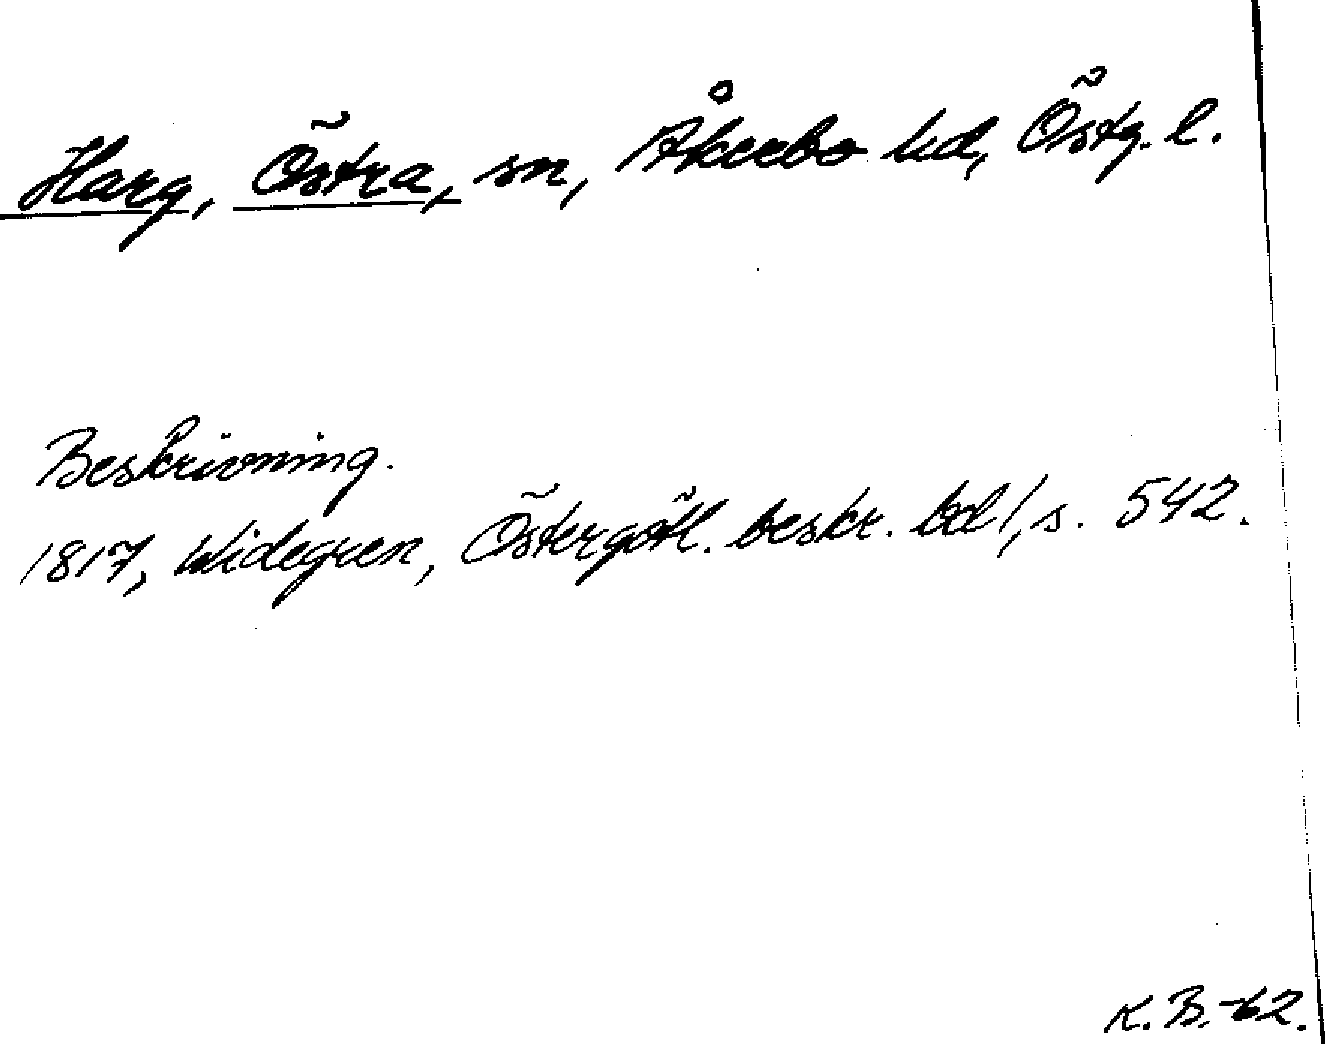 Harg, Östra, sn, Åkerbo hd, Östg. l.
Beskrivning.
1817, Widegren, Östergötl. beskr. bd 1, s. 542.
K. B. -62.